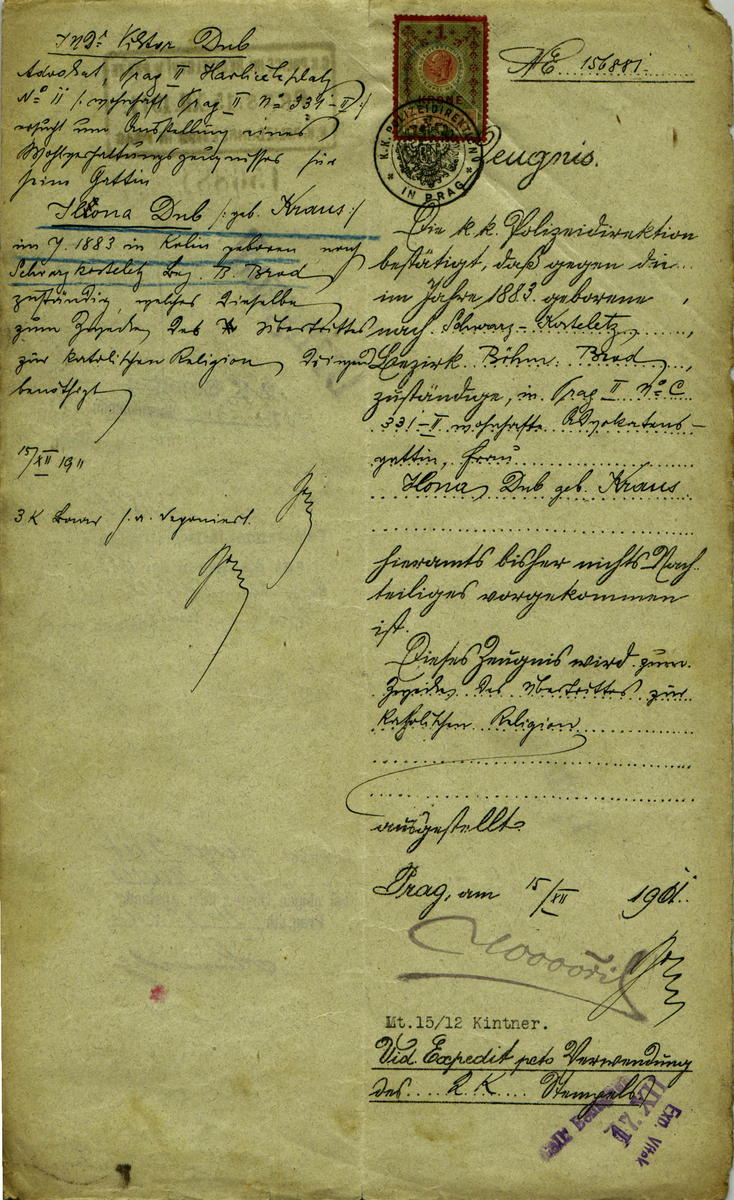 JUDr Viktor Dub
Advokat, Prag II Havličekplatz
No 11 /: wohnhaft Prag II No 331-II :/
ersucht um Ausstellung eines
Wohlverhaltungszeugnisses für
seine Gattin
Ilona Dub /: geb. Kraus :/
im J. 1883 in Kolin geboren nach
Schwarzkosteletz Bez. B. Brod
zuständig, welches dieselbe
zum Zwecke des Übertrittes
zur katolischen Religion dringend
benöthigt
15/XII 1911
3 K deponiert.
1
KRONE
K.K. POLIZEIDIREKTION
* IN PRAG *
NE 156881
Zeugnis.
Die k.k. Polizeidirektion
bestätigt, daß gegen die
im Jahre 1883 geborene,
nach Schwarz-Kosteletz,
Bezirk Böhm. Brod,
zuständige, in Prag II No C
331-II wohnhafte Advokatens-
gattin, Frau
Ilona Dub geb. Kraus
hieramts bisher nichts Nach-
teiliges vorgekommen
ist.
Dieses Zeugnis wird zum
Zwecke des Übertrittes zur
katholischen Religion
ausgestellt.
Prag, am 15/XII 1911.
Mt.15/12 Kintner.
Vid. Expedit pcto Verwendung
des 2 K Stempels
17 XII
Exp. Vltak